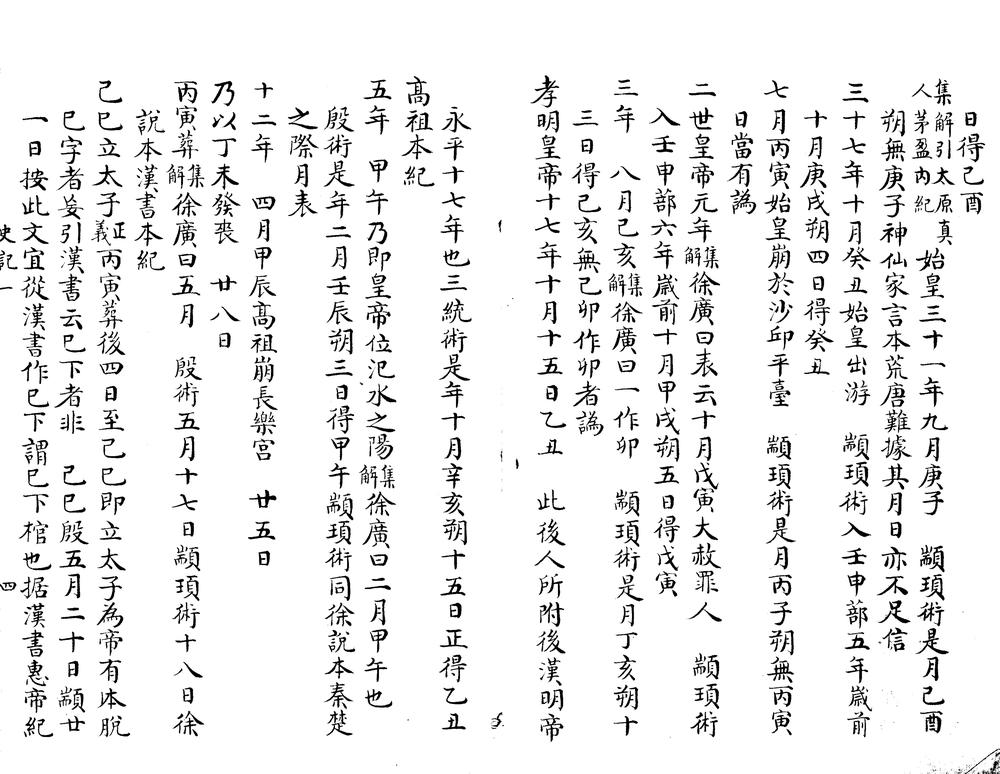 日得己酉
集解引太原真人茅盈內紀　始皇三十一年九月庚子　顓頊術是月己酉
朔無庚子神仙家言本荒唐難據其月日亦不足信
三十七年十月癸丑始皇出游　顓頊術入壬申蔀五年歲前
十月庚戌朔四日得癸丑
七月丙寅始皇崩於沙邱平臺　顓頊術是月丙子朔無丙寅
日當有譌
二世皇帝元年集解徐廣曰表云十月戊寅大赦罪人　顓頊術
入壬申蔀六年歲前十月甲戌朔五日得戊寅
三年　八月己亥集解徐廣曰一作卯　顓頊術是月丁亥朔十
三日得己亥無己卯作卯者譌
孝明皇帝十七年十月十五日乙丑　此後人所附後漢明帝
永平十七年也三統術是年十月辛亥朔十五日正得乙丑
高祖本紀
五年　甲午乃即皇帝位氾水之陽集解徐廣曰二月甲午也
殷術是年二月壬辰朔三日得甲午顓頊術同徐說本秦楚
之際月表
十二年　四月甲辰高祖崩長樂宮　廿五日
乃以丁未發喪　廿八日
丙寅葬集解徐廣曰五月　殷術五月十七日顓頊術十八日徐
說本漢書本紀
己巳立太子正義丙寅葬後四日至己巳即立太子為帝有本脫
巳字者妄引漢書云巳下者非　己巳殷五月二十日顓廿
一日按此文宜從漢書作巳下謂巳下棺也据漢書惠帝紀
史記一
四